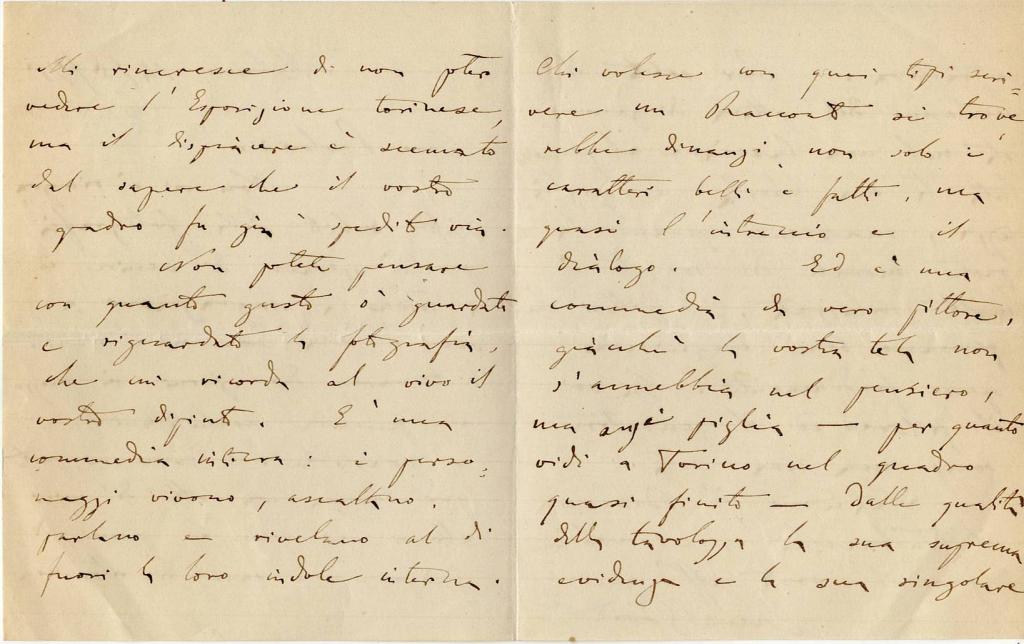 Mi rincresce di non poter
vedere l'Esposizione torinese,
ma il dispiacere è scemato
dal sapere che il vostro
quadro fu già spedito via.
Non potete pensare
con quanto gusto ò guardato
e riguardato la fotografia,
che mi ricorda al vivo il
vostro dipinto. E' una
commedia intiera: i perso=
naggi vivono, ascoltano,
parlano e rivelano al di
fuori la loro indole interna.
Chi volesse con quei tipi scri=
vere un Racconto si trove,
rebbe dinanzi non solo i
caratteri belli e fatti, ma
quasi l'intreccio e il
dialogo. Ed è una
commedia da vero pittore,
giacchè la vostra tela non
s'annebbia nel pensiero,
ma piglia — per quanto
vidi a Torino nel quadro
quasi finito — dalle qualità
della tavolozza la sua suprema
evidenza e la sua singolare